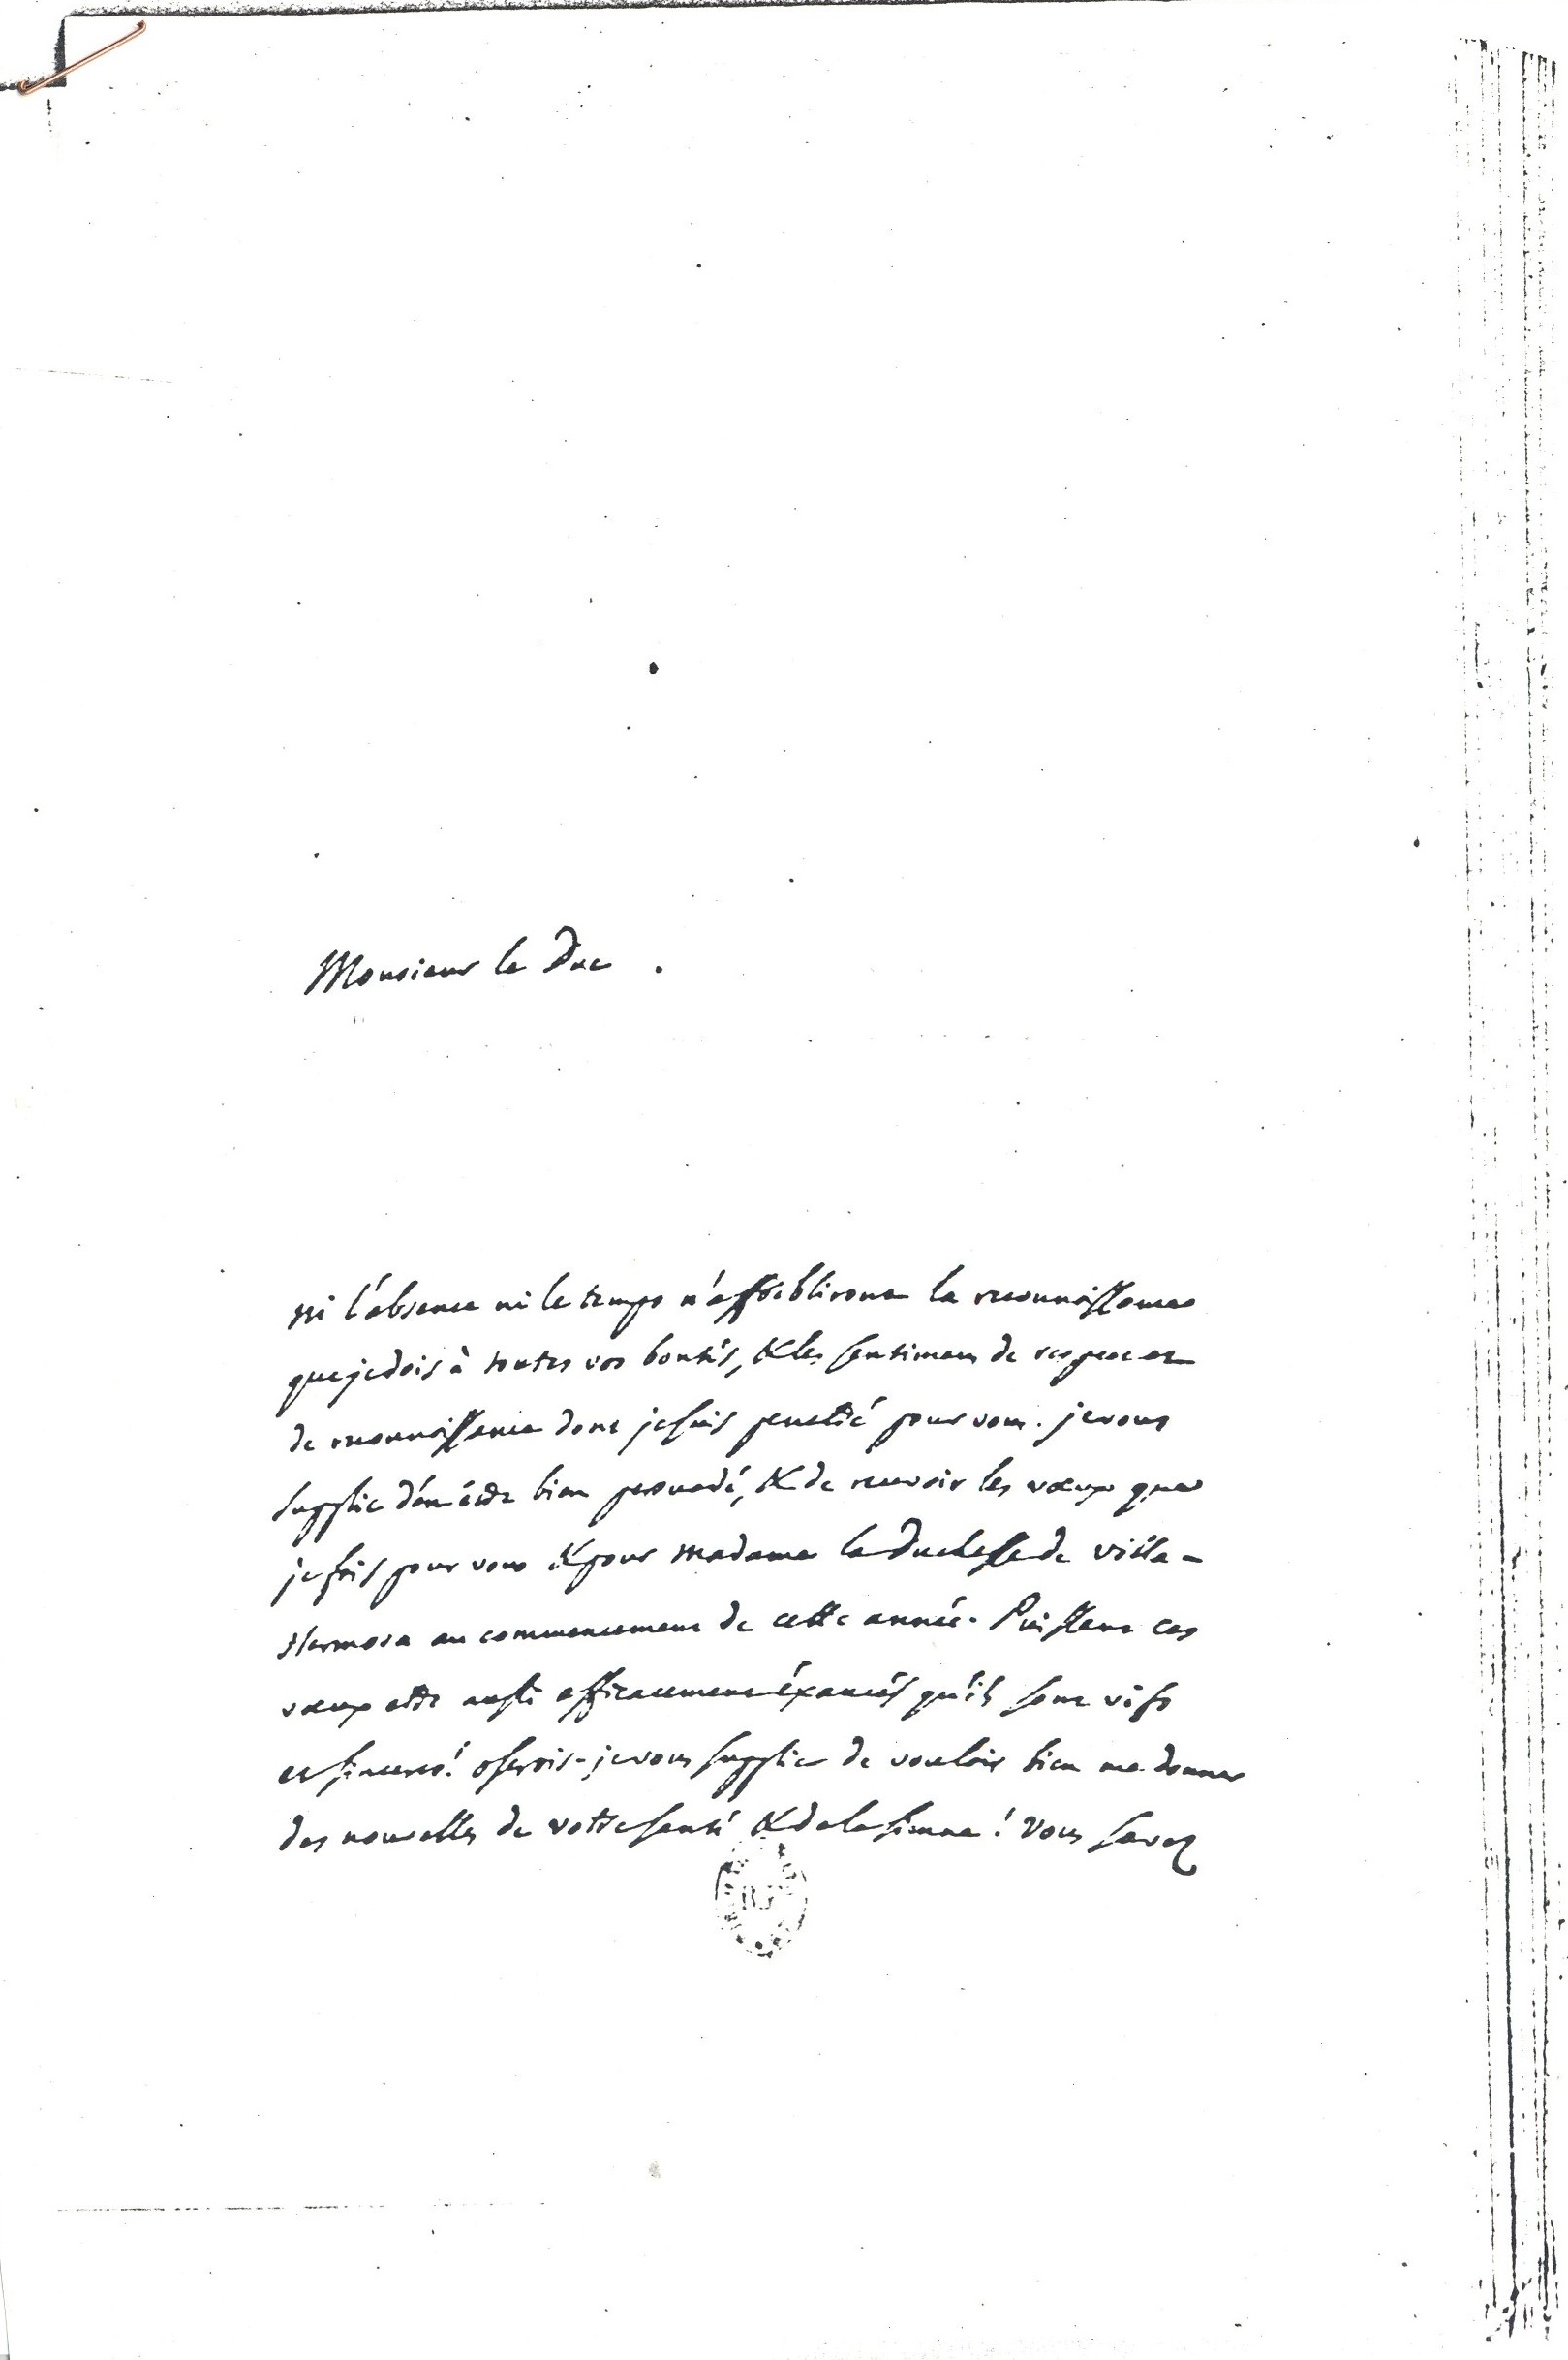 Monsieur le Duc
ni l'absence ni le temps n'affoibliront la reconnoissance
que je dois à toutes vos bontés, & les sentimens de respect et
de reconnoissance dont je suis penetré pour vous. je vous
supplie d'en étre bien persuadé, & de recevoir les vœux que
je fais pour vous & pour madame la Duchesse de villa-
Hermosa au commencement de cette année. Puissent ces
vœux etre aussi efficacement éxaucés qu'ils sont vifs
et sinceres! oserois-je vous supplier de vouloir bien me donner
des nouvelles de votre santé & de la sienne! Vous savez